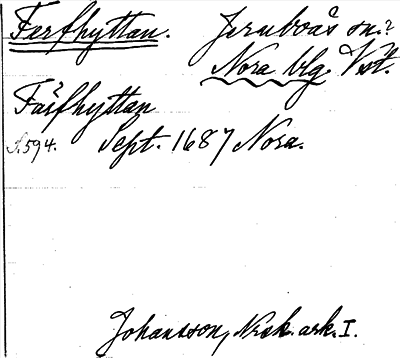 Farfhyttan. Jernboås sn.?
Nora blg. Vstl.
Fårfhyttan
S. 594. Sept. 1687 Nora.
Johansson, Nrsk. ark. I.